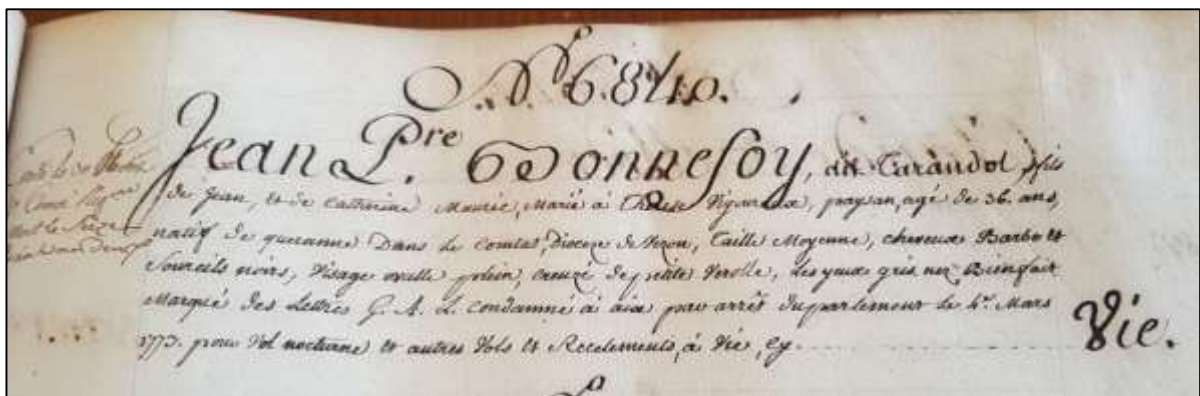 N.º 6840.
Jean P.re Bonnefoy, dit Carandol, fils
de Jean, et de Catherine Maurie, Marié à Therese, paysan, agé de 36. ans,
natif de queranne Dans le Comtat, Dioceze de Vezon, Taille Moyenne, cheveux Barbe et
Sourcils noirs, Visage ovalle plein, creuzé de petite Verolle, les yeux gris nez Bien fait
Marqué des Lettres G. A. L. Condamné à aix par arrêt du parlement le 4.e Mars
1773. pour Vol nocturne et autres Vols et Recelements, à Vie, Cy
Vie.